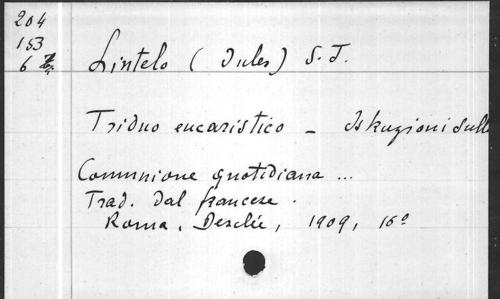 204
153
6
Lintelo (Jules) S.J.
Triduo eucaristico - Istruzioni sulle
Comunione quotidiana ...
Trad. dal francese.
Roma, Desclée, 1909, 16º